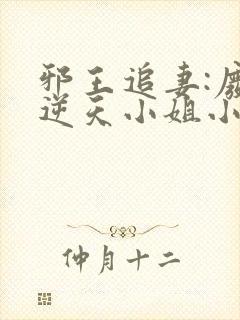 邪王追妻:废
逆天小姐小
仲月十二